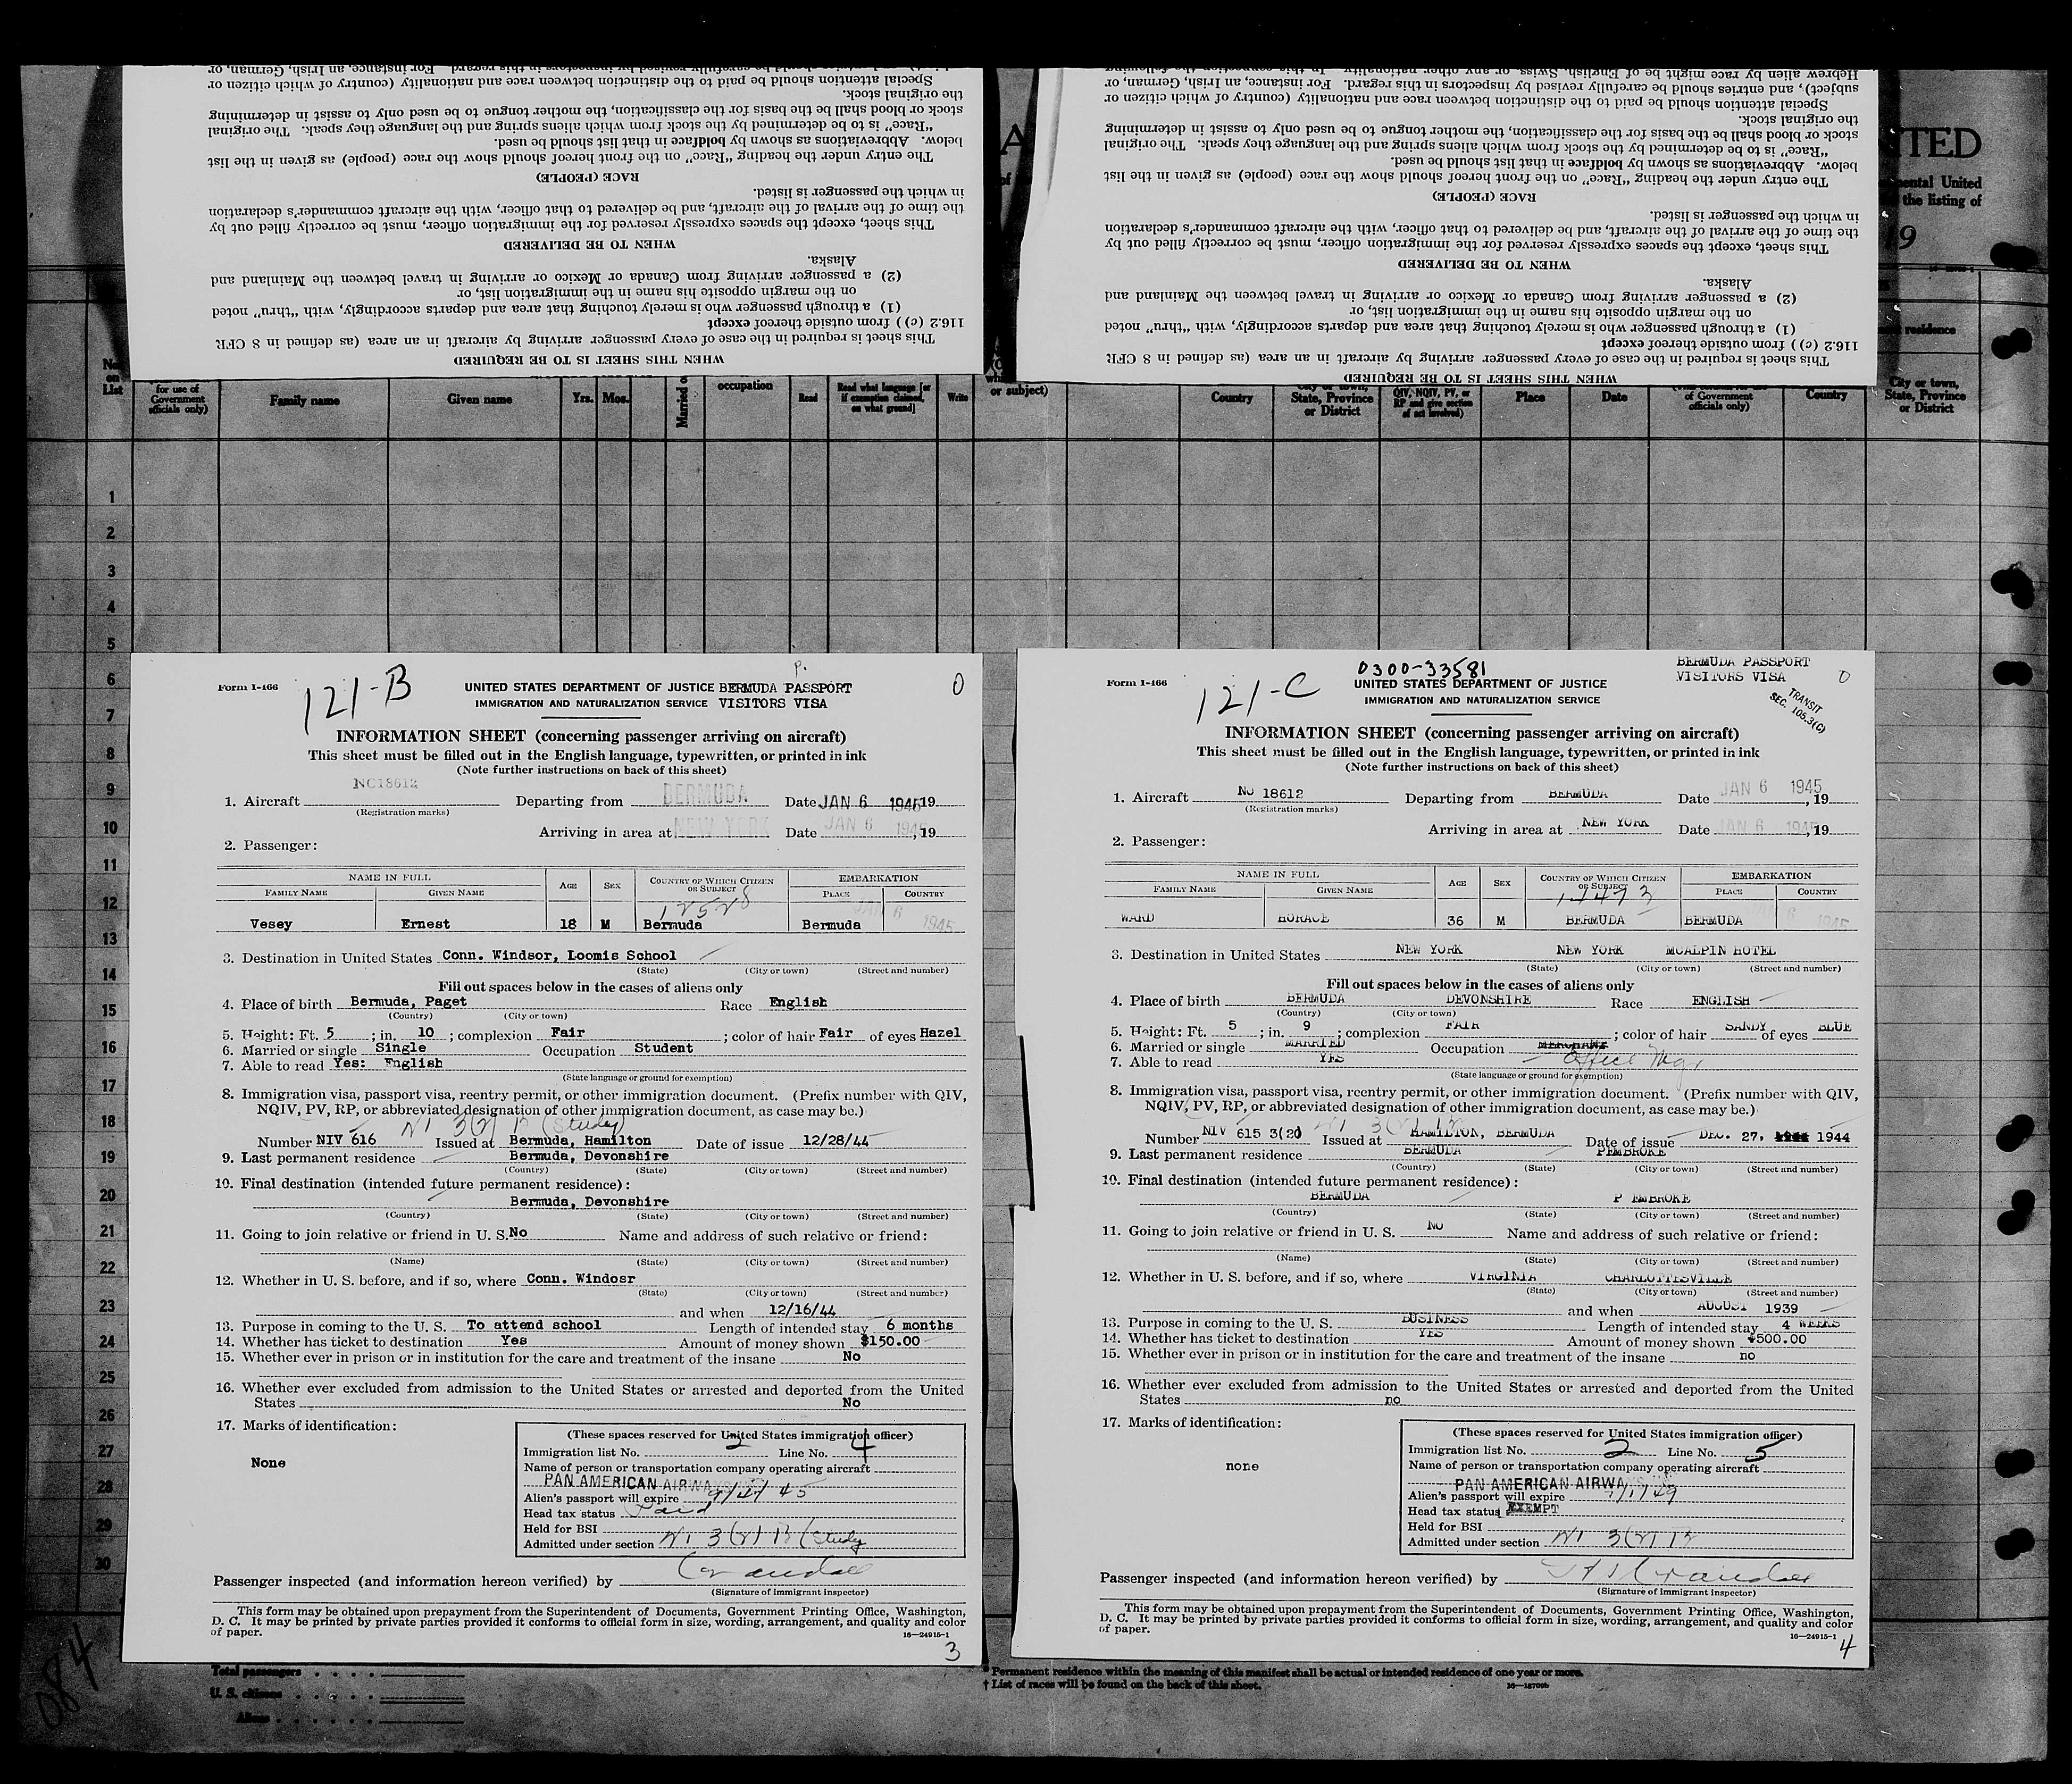 WHEN THIS SHEET IS TO BE REQUIRED
This sheet is required in the case of every passenger arriving by aircraft in an area (as defined in 8 CFR
116.2 (c) ) from outside thereof except
(1) a through passenger who is merely touching that area and departs accordingly, with "thru" noted
on the margin opposite his name in the immigration list, or
(2) a passenger arriving from Canada or Mexico or arriving in travel between the Mainland and
Alaska.
WHEN TO BE DELIVERED
This sheet, except the spaces expressly reserved for the immigration officer, must be correctly filled out by
the time of the arrival of the aircraft, and be delivered to that officer, with the aircraft commander's declaration
in which the passenger is listed.
RACE (PEOPLE)
The entry under the heading "Race" on the front hereof should show the race (people) as given in the list
below. Abbreviations as shown by boldface in that list should be used.
"Race" is to be determined by the stock from which aliens spring and the language they speak. The original
stock or blood shall be the basis for the classification, the mother tongue to be used only to assist in determining
the original stock.
Special attention should be paid to the distinction between race and nationality (country of which citizen or
WHEN THIS SHEET IS TO BE REQUIRED
This sheet is required in the case of every passenger arriving by aircraft in an area (as defined in 8 CFR
116.2 (c) ) from outside thereof except
(1) a through passenger who is merely touching that area and departs accordingly, with "thru" noted
on the margin opposite his name in the immigration list, or
(2) a passenger arriving from Canada or Mexico or arriving in travel between the Mainland and
Alaska.
WHEN TO BE DELIVERED
This sheet, except the spaces expressly reserved for the immigration officer, must be correctly filled out by
the time of the arrival of the aircraft, and be delivered to that officer, with the aircraft commander's declaration
in which the passenger is listed.
RACE (PEOPLE)
The entry under the heading "Race" on the front hereof should show the race (people) as given in the list
below. Abbreviations as shown by boldface in that list should be used.
"Race" is to be determined by the stock from which aliens spring and the language they speak. The original
stock or blood shall be the basis for the classification, the mother tongue to be used only to assist in determining
the original stock.
Special attention should be paid to the distinction between race and nationality (country of which citizen or
subject), and entries should be carefully revised by inspectors in this regard. For instance, an Irish, German, or
Hebrew alien by race might be of English, Swiss, or any other nationality.
ITED
mental United
the listing of
9
residence
No. on List
for use of Government officials only)
Family name
Given name
Yrs.
Mos.
Married or
occupation
Read
Read what language [or if exemption claimed, on what ground]
Write
or subject)
Country
City or town, State, Province or District
QIV, NQIV, PV, or RP and give section of act involved)
Place
Date
of Government officials only)
Country
City or town, State, Province or District
1
2
3
4
5
6
7
8
9
10
11
12
13
14
15
16
17
18
19
20
21
22
23
24
25
26
27
28
29
30
Form I-466
121-B
P.
0
UNITED STATES DEPARTMENT OF JUSTICE BERMUDA PASSPORT
IMMIGRATION AND NATURALIZATION SERVICE VISITORS VISA
INFORMATION SHEET (concerning passenger arriving on aircraft)
This sheet must be filled out in the English language, typewritten, or printed in ink
(Note further instructions on back of this sheet)
1. Aircraft NC18612 Departing from BERMUDA Date JAN 6 1945, 19
(Registration marks)
Arriving in area at NEW YORK Date JAN 6 1945, 19
2. Passenger:
NAME IN FULL
FAMILY NAME
GIVEN NAME
AGE
SEX
COUNTRY OF WHICH CITIZEN OR SUBJECT
EMBARKATION
PLACE
COUNTRY
12528
JAN 6 1945
Vesey Ernest 18 M Bermuda Bermuda
3. Destination in United States Conn. Windsor, Loomis School
(State) (City or town) (Street and number)
Fill out spaces below in the cases of aliens only
4. Place of birth Bermuda, Paget Race English
(Country) (City or town)
5. Height: Ft. 5; in. 10; complexion Fair; color of hair Fair of eyes Hazel
6. Married or single Single Occupation Student
7. Able to read Yes: English
(State language or ground for exemption)
8. Immigration visa, passport visa, reentry permit, or other immigration document. (Prefix number with QIV,
NQIV, PV, RP, or abbreviated designation of other immigration document, as case may be.)
3(2) B (Study)
Number NIV 616 Issued at Bermuda, Hamilton Date of issue 12/28/44
9. Last permanent residence Bermuda, Devonshire
(Country) (State) (City or town) (Street and number)
10. Final destination (intended future permanent residence):
Bermuda, Devonshire
(Country) (State) (City or town) (Street and number)
11. Going to join relative or friend in U. S. No Name and address of such relative or friend:
(Name) (State) (City or town) (Street and number)
12. Whether in U. S. before, and if so, where Conn. Windosr
(State) (City or town) (Street and number)
and when 12/16/44
13. Purpose in coming to the U. S. To attend school Length of intended stay 6 months
14. Whether has ticket to destination Yes Amount of money shown $150.00
15. Whether ever in prison or in institution for the care and treatment of the insane No
16. Whether ever excluded from admission to the United States or arrested and deported from the United
States No
17. Marks of identification:
None
(These spaces reserved for United States immigration officer)
Immigration list No. 2 Line No. 4
Name of person or transportation company operating aircraft
PAN AMERICAN AIRWAYS
Alien's passport will expire
Head tax status Paid
Held for BSI
Admitted under section 3(2) B (Study
Passenger inspected (and information hereon verified) by Crandall
(Signature of immigrant inspector)
This form may be obtained upon prepayment from the Superintendent of Documents, Government Printing Office, Washington,
D. C. It may be printed by private parties provided it conforms to official form in size, wording, arrangement, and quality and color
of paper.
16—24915-1
3
Form I-466
121-C
0300-33581
BERMUDA PASSPORT
VISITORS VISA
0
TRANSIT
SEC. 105.3(C)
UNITED STATES DEPARTMENT OF JUSTICE
IMMIGRATION AND NATURALIZATION SERVICE
INFORMATION SHEET (concerning passenger arriving on aircraft)
This sheet must be filled out in the English language, typewritten, or printed in ink
(Note further instructions on back of this sheet)
1. Aircraft NC 18612 Departing from BERMUDA Date JAN 6 1945, 19
(Registration marks)
Arriving in area at NEW YORK Date JAN 6 1945, 19
2. Passenger:
NAME IN FULL
FAMILY NAME
GIVEN NAME
AGE
SEX
COUNTRY OF WHICH CITIZEN OR SUBJECT
EMBARKATION
PLACE
COUNTRY
6 1945
WARD HORACE 36 M BERMUDA BERMUDA
3. Destination in United States NEW YORK NEW YORK MCALPIN HOTEL
(State) (City or town) (Street and number)
Fill out spaces below in the cases of aliens only
4. Place of birth BERMUDA DEVONSHIRE Race ENGLISH
(Country) (City or town)
5. Height: Ft. 5; in. 9; complexion FAIR; color of hair SANDY of eyes BLUE
6. Married or single MARRIED Occupation MERCHANT Office Mgr
7. Able to read YES
(State language or ground for exemption)
8. Immigration visa, passport visa, reentry permit, or other immigration document. (Prefix number with QIV,
NQIV, PV, RP, or abbreviated designation of other immigration document, as case may be.)
Number NIV 615 3(2) Issued at HAMILTON, BERMUDA Date of issue DEC. 27, 1944
9. Last permanent residence BERMUDA PEMBROKE
(Country) (State) (City or town) (Street and number)
10. Final destination (intended future permanent residence):
BERMUDA P EMBROKE
(Country) (State) (City or town) (Street and number)
11. Going to join relative or friend in U. S. NO Name and address of such relative or friend:
(Name) (State) (City or town) (Street and number)
12. Whether in U. S. before, and if so, where VIRGINIA CHARLOTTESVILLE
(State) (City or town) (Street and number)
and when AUGUST 1939
13. Purpose in coming to the U. S. BUSINESS Length of intended stay 4 WEEKS
14. Whether has ticket to destination YES Amount of money shown $500.00
15. Whether ever in prison or in institution for the care and treatment of the insane no
16. Whether ever excluded from admission to the United States or arrested and deported from the United
States no
17. Marks of identification:
none
(These spaces reserved for United States immigration officer)
Immigration list No. 2 Line No. 5
Name of person or transportation company operating aircraft
PAN AMERICAN AIRWAYS
Alien's passport will expire
Head tax status EXEMPT
Held for BSI
Admitted under section 3(2) B
Passenger inspected (and information hereon verified) by Crandall
(Signature of immigrant inspector)
This form may be obtained upon prepayment from the Superintendent of Documents, Government Printing Office, Washington,
D. C. It may be printed by private parties provided it conforms to official form in size, wording, arrangement, and quality and color
of paper.
16—24915-1
4
084
Total passengers
U. S. citizens
Aliens
* Permanent residence within the meaning of this manifest shall be actual or intended residence of one year or more.
† List of races will be found on the back of this sheet.